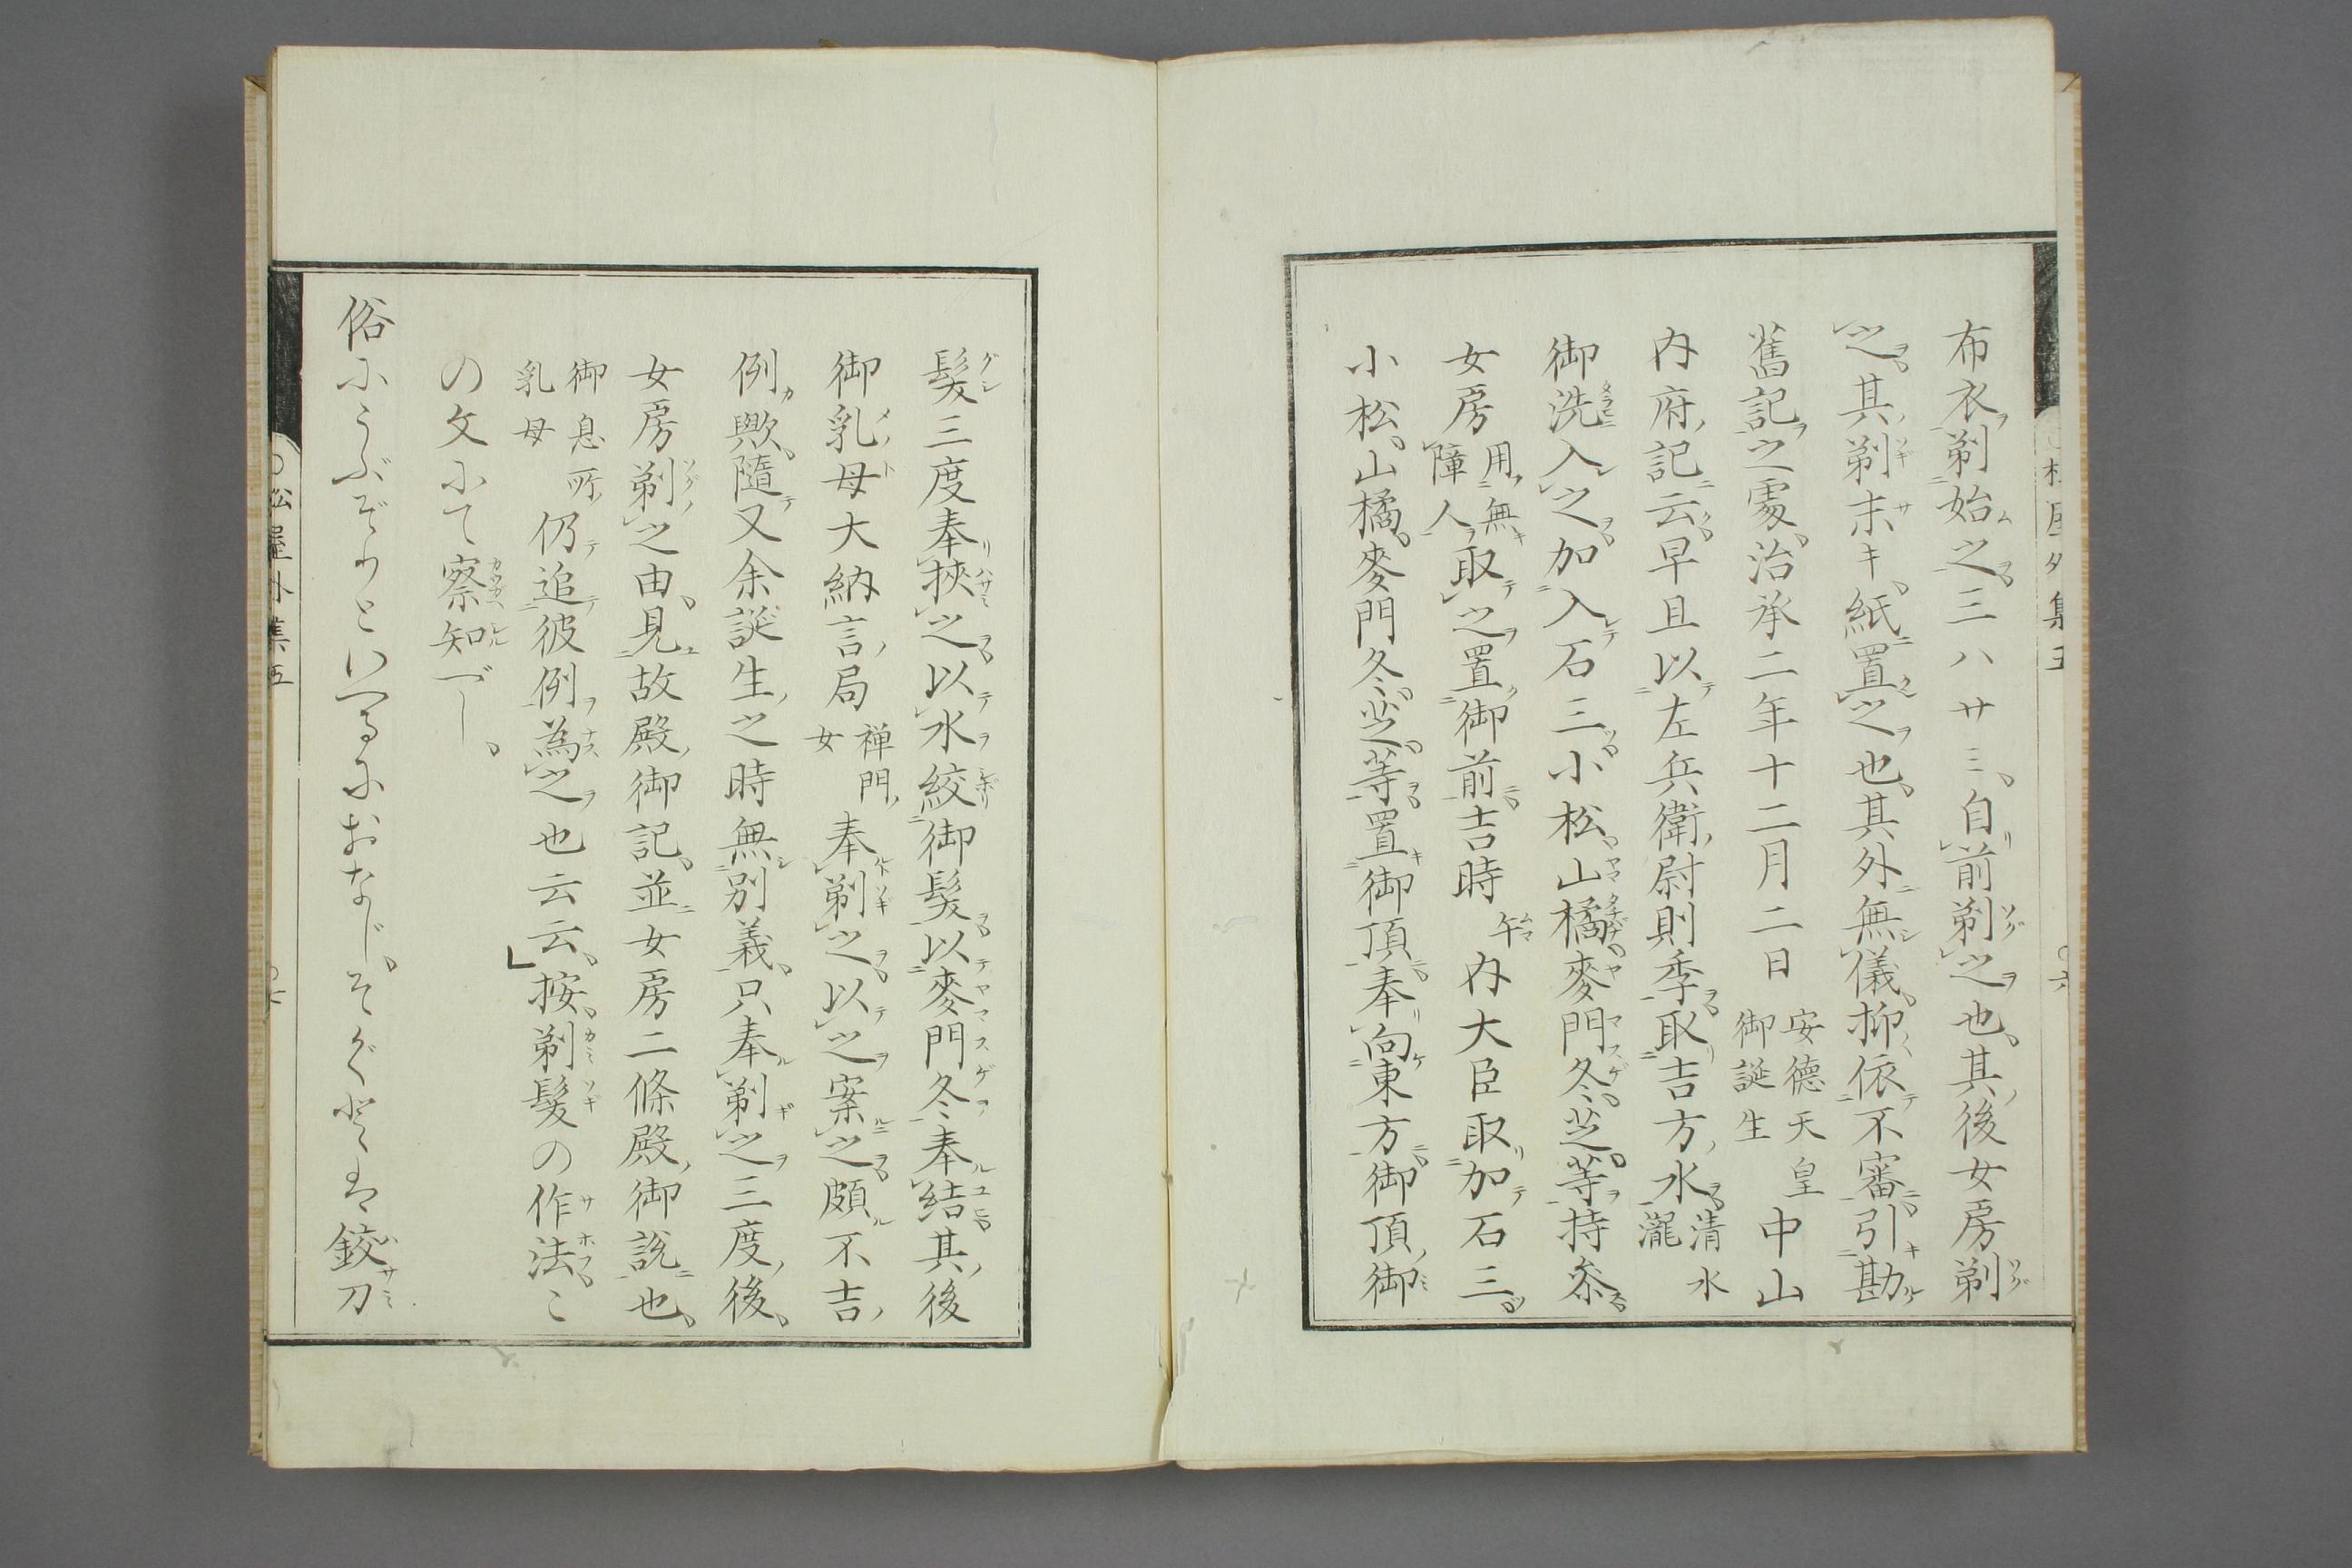 布衣剃始之三ハサミ、自前剃之也、其後女房剃
之、其剃末キ、紙置之也、其外無儀、抑依不審引勘
舊記之處、治承二年十二月二日安德天皇御誕生中山
内府記云、早旦以左兵衛尉則季取吉方水清水瀧
御洗入之、加入石三、小松、山橘、麥門冬、芝等持參、
女房用無障人取之置御前、吉時午内大臣取加石三、
小松、山橘、麥門冬、芝等、置御頂、奉向東方、御頂御
髮三度奉挾之、以水絞御髮、以麥門冬奉結、其後
御乳母大納言局禅門女奉剃之、以之案之、頗不吉
例歟、隨又余誕生之時無別義、只奉剃之三度、後、
女房剃之由、見故殿御記、並女房二條殿御說也、
御息所乳母仍追彼例為之也云云、」按、剃髮の作法、こ
の文にて察知べし、
俗にうぶぞりといへるにおなじ、そぐとは鉸刀
松屋外集五
〇六
〇松屋外集五
〇七